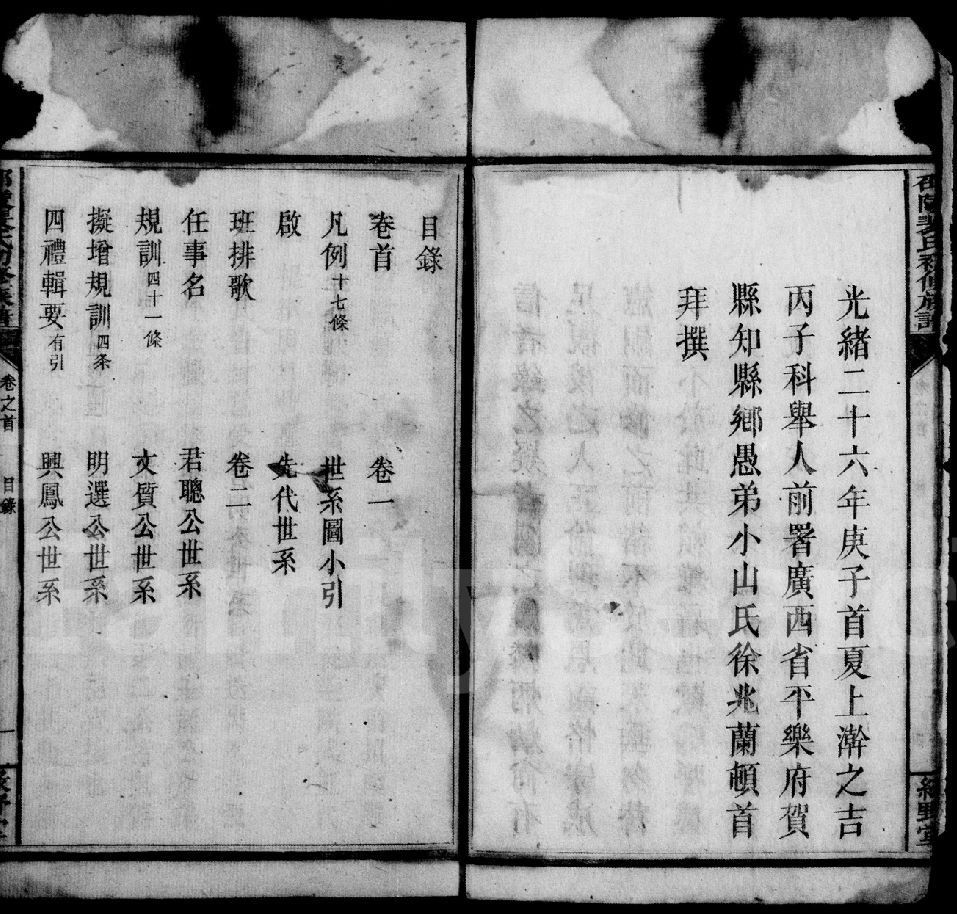 光緒二十六年庚子首夏上澣之吉
丙子科舉人前署廣西省平樂府賀
縣知縣鄉愚弟小山氏徐兆蘭頓首
拜撰
目錄
卷首
凡例十七條
啟
班排歌
任事名
規訓四十一條
擬增規訓四条
四禮輯要有引
卷一
世系圖小引
先代世系
卷二
君聰公世系
文質公世系
明選公世系
興鳳公世系
卷之首
目錄
一